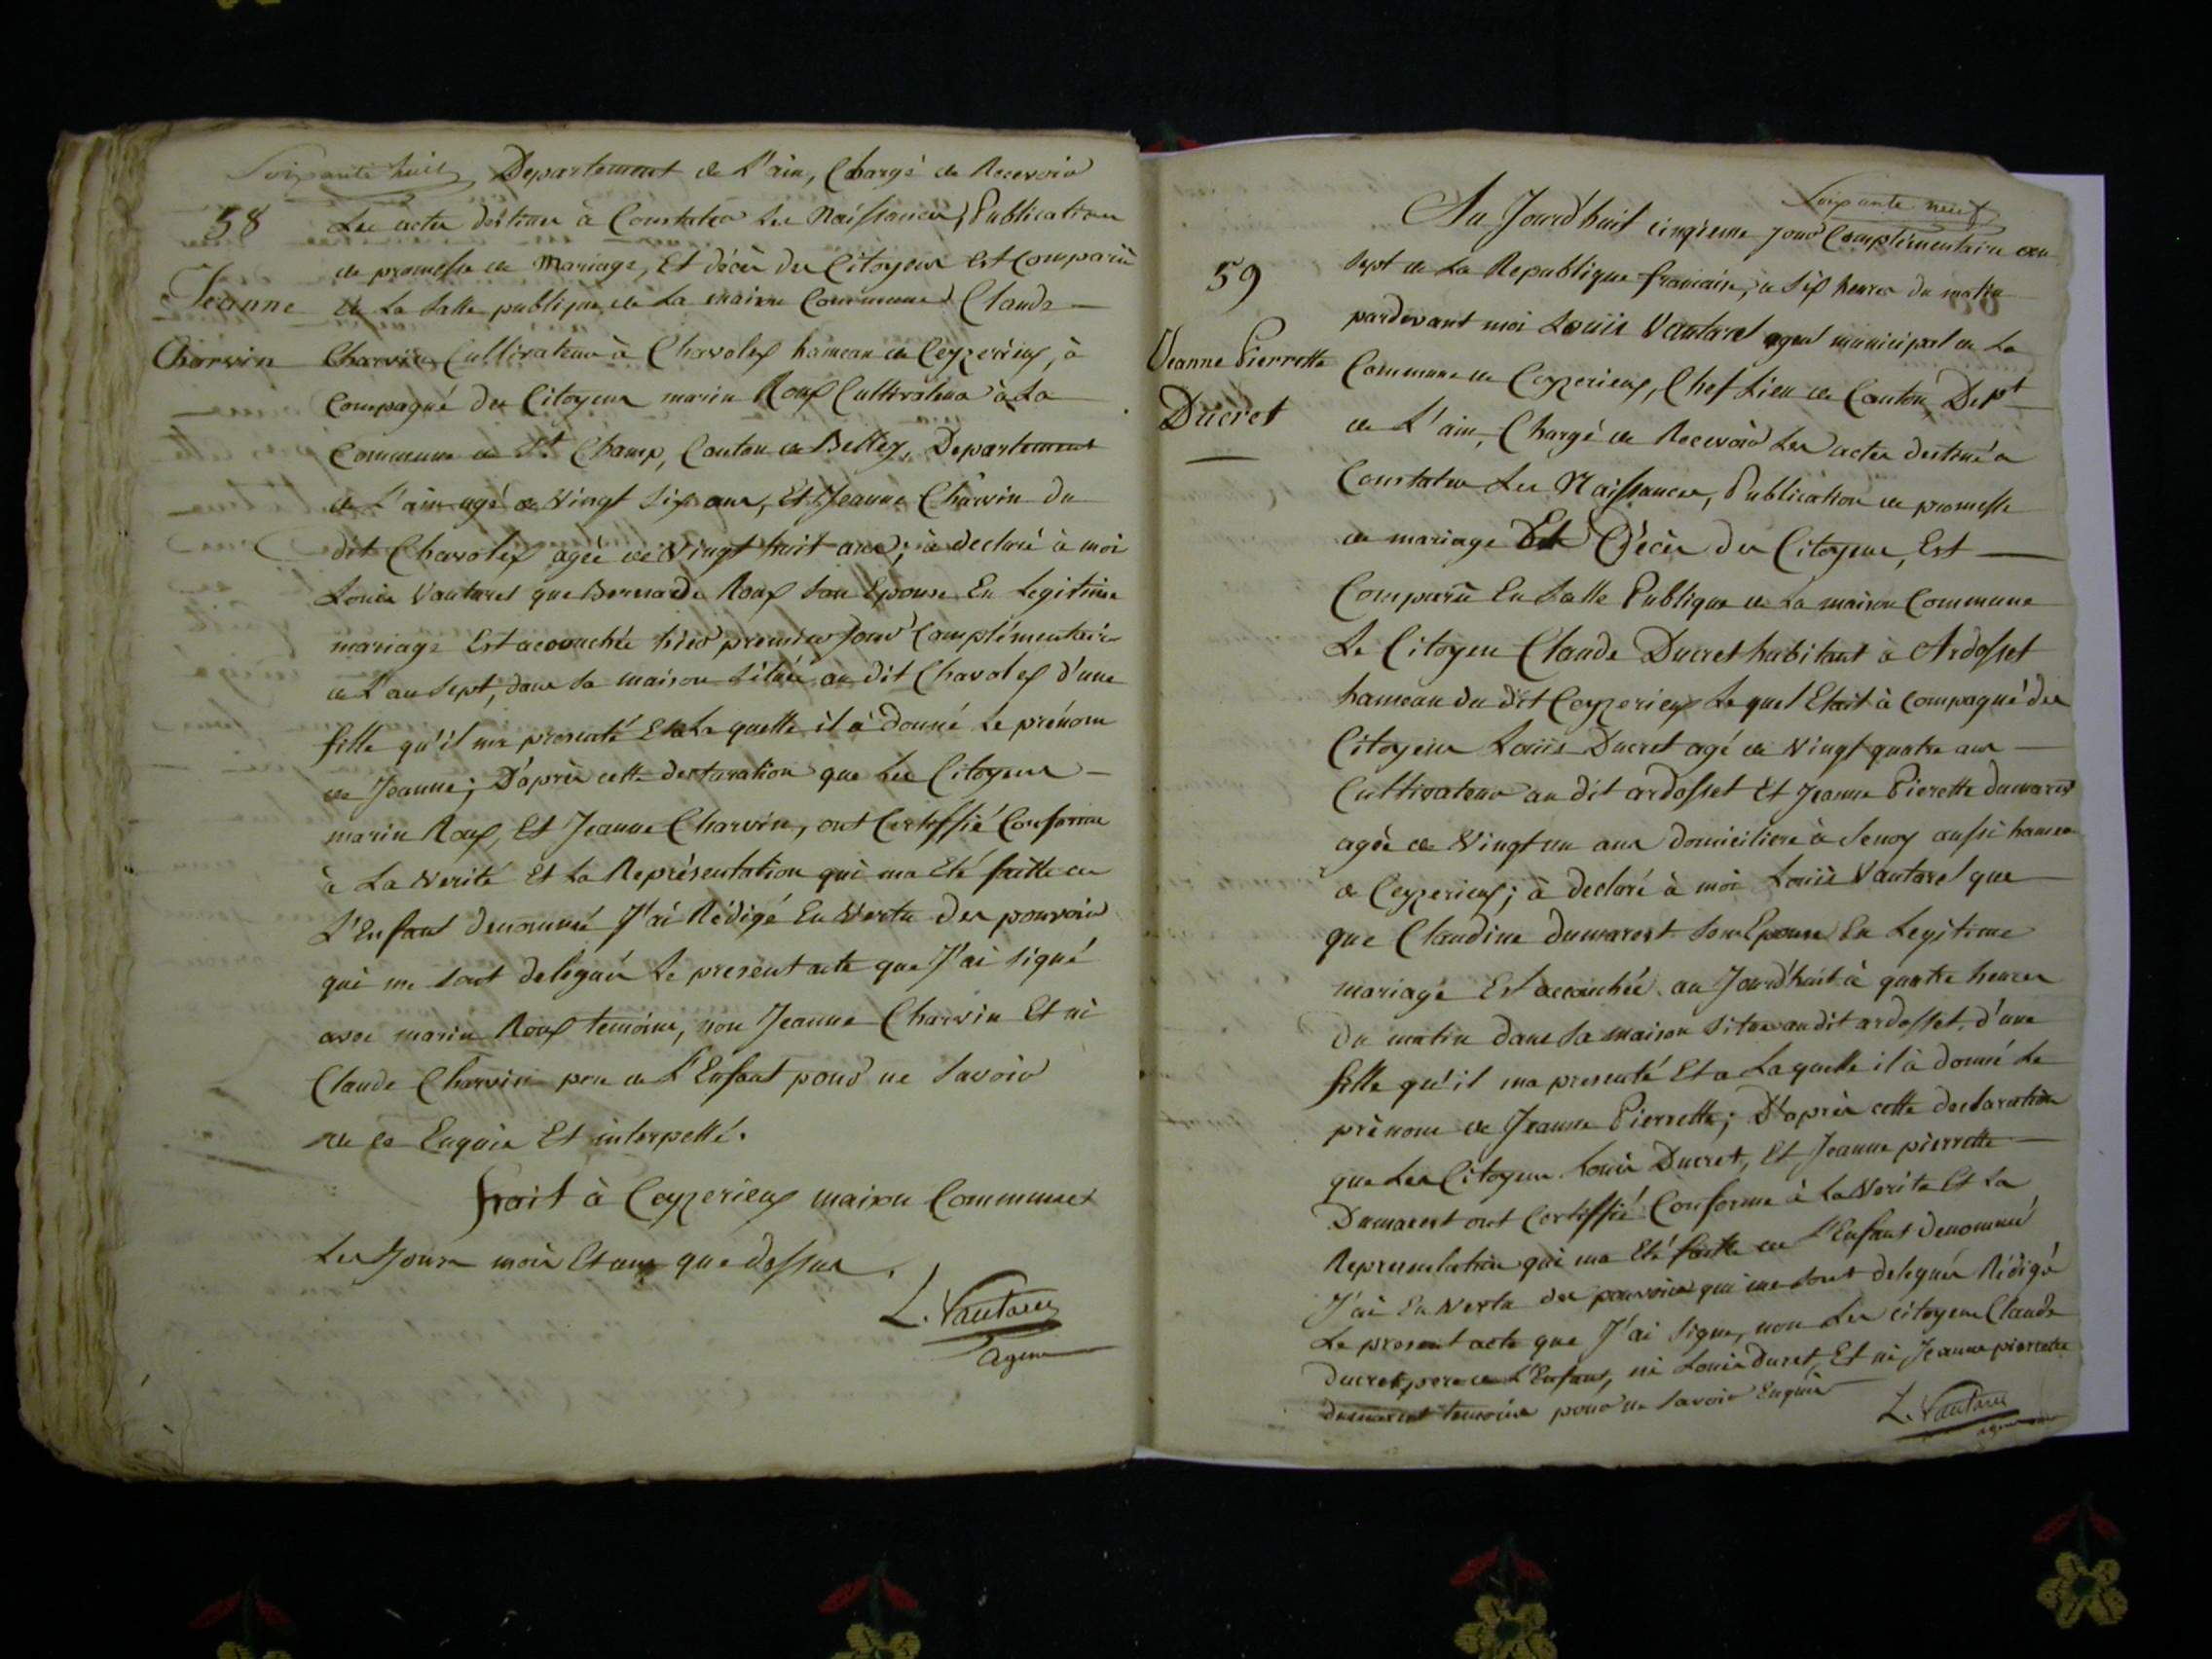 Soixante huit
Departement de L'ain, Chargé de Recevoir
58
Les actes destinés à Constater Les Naissances, Publication
de promesse de Mariage, Et décès des Citoyens Est Comparû
Jeanne
En La Salle publique de La maison Commune Claude
Charvin
Charvin Cultivateur à Chavoley hameau de Ceyzerieux, à
Compagné des Citoyens marin Roux Cultivateur à La
Commune de St. Champ, Canton de Belley, Departement
de L'ain agé de Vingt Six ans, Et Jeanne Charvin du
dit Chavoley agée de Vingt huit ans; à declaré à moi
Louis Vautaret que Bernarde Roux Son Epouse En Legitime
mariage Est acouchée hier premier Jour Complémentaire
de L'an Sept, dans Sa maison Située au dit Chavoley d'une
fille qu'il ma presenté Et a La quelle il à donné Le prénom
de Jeanne; D'après cette declaration que Les Citoyens
marin Roux, Et Jeanne Charvin, ont Certiffié Conforme
à La Verité Et La Représentation qui ma Eté faitte de
L'Enfant denommé J'ai Rédigé En Vertu des pouvoirs
qui me Sont delegués Le present acte que J'ai Signé
avec marin Roux temoins, non Jeanne Charvin Et ni
Claude Charvin pere de L'Enfant pour ne Savoir
de ce Enquis Et interpellé.
fait à Ceyzerieux maison Commune
Les Jours mois Et ans que dessus.
L. Vautaret
agent
Soixante neuf
Au Jourd'huit cinqieme jour Complémentaire an
59
Sept de La Republique francaise, a Six heures du matin
pardevant moi Louis Vautaret agent municipal de La
Jeanne Pierrette
Commune de Ceyzerieux, Chef Lieu de Canton, Dept
Ducret
de L'ain, Chargé de Recevoir Les actes destiné a
Constater Les Naissances, Publication de promesse
de mariage Et Décès des Citoyens, Est
Comparu En Salle Publique de La maison Commune
Le Citoyen Claude Ducret habitant à Ardosset
hameau du dit Ceyzerieux Le quel Etait à Compagné des
Citoyens Louis Ducret agé de Vingt quatre ans
Cultivateur au dit ardosset Et Jeanne Pierette dumarest
agée de Vingt un ans domiciliere à Senoy aussi hameau
de Ceyzerieux; à declaré à moi Louis Vautaret que
que Claudine dumarest Son Epouse En Legitime
mariage Est acouchée au Jourd'huit à quatre heures
du matin dans Sa maison Située audit ardosset, d'une
fille qu'il ma presenté Et a Laquelle il à donné Le
prénom de Jeanne Pierrette; D'après cette declaration
que Les Citoyens Louis Ducret, Et Jeanne pierrette
Dumarest ont Certiffié Conforme à La Verité Et La
Representation qui ma Eté faitte de L'Enfant denommé
J'ai En Vertu des pouvoirs qui me Sont delegués Rédigé
Le present acte que J'ai Signé, non Les citoyens Claude
Ducret, pere de L'Enfant, ni Louis Ducret, Et ni Jeanne pierrette
dumarest temoins pour ne Savoir Enquis
L. Vautaret
agent